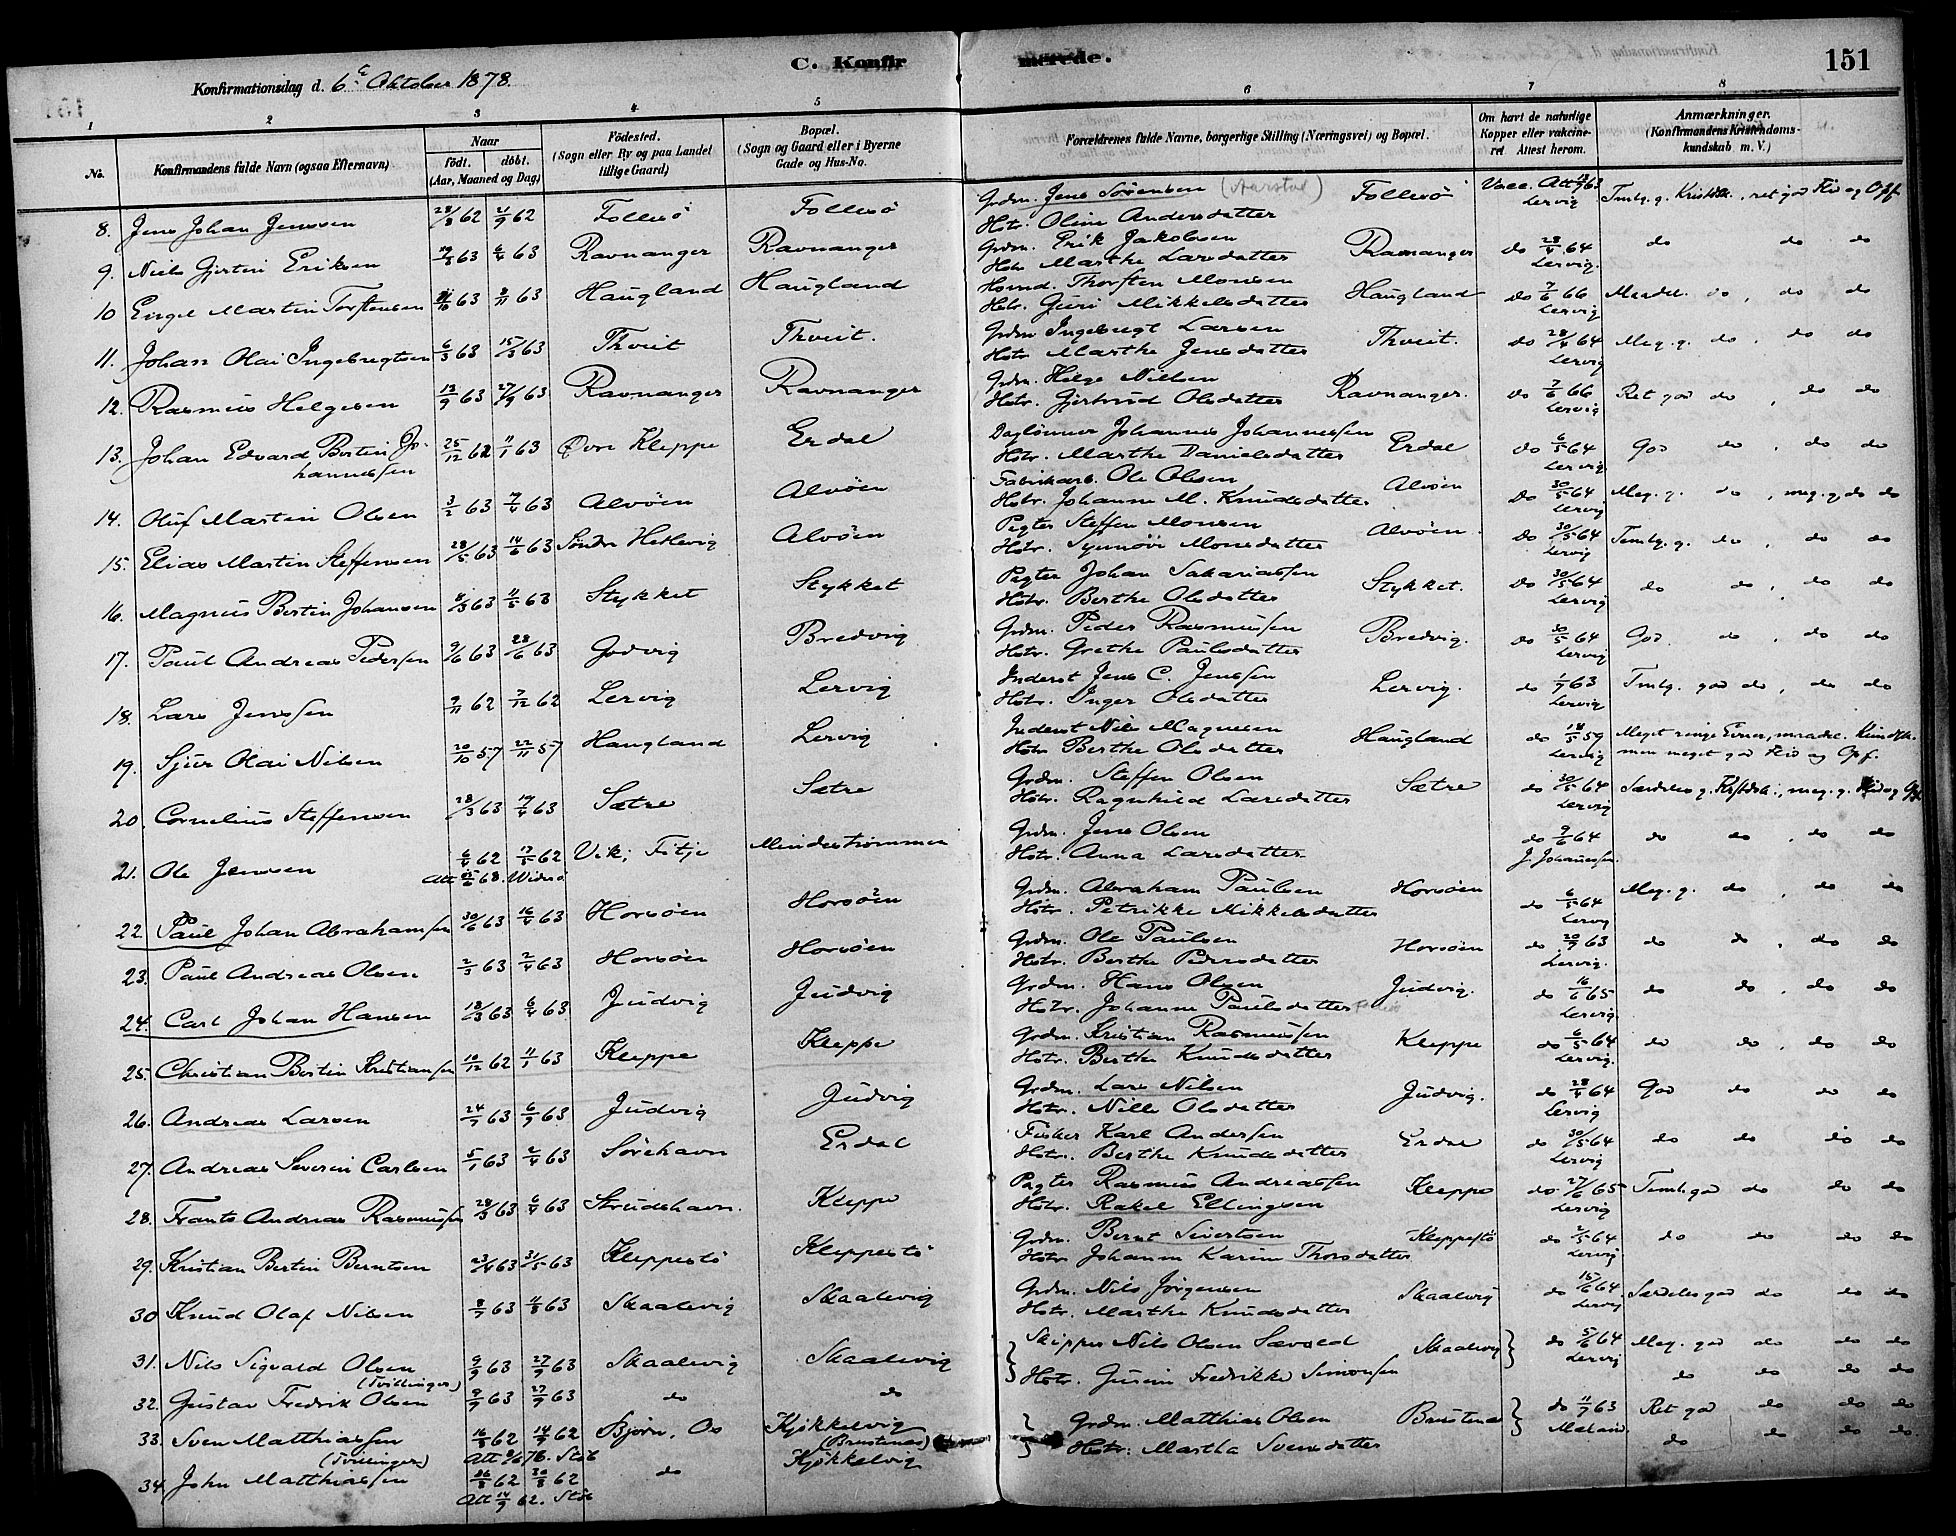 C. Konfirmerede.
151
Konfirmationsdag d. 6te Oktober 1878.
1 2 3 4 5 6 7 8
No.
Konfirmandens fulde Navn (ogsaa Efternavn).
Naar
født. døbt.
(Aar, Maaned og Dag)
Fødested.
(Sogn eller By og paa Landet
tillige Gaard)
Bopæl.
(Sogn og Gaard eller i Byerne
Gade og Hus-No.
Forældrenes fulde Navne, borgerlige Stilling (Næringsvei) og Bopæl.
Om havt de naturlige
Kopper eller vakcine-
ret Attest herom.
Anmærkninger.
(Konfirmandens Kristendoms-
kundskab m. V.)
8. Jens Johan Jenssen 28/8 62 21/9 62 Follesö Follesö Grdm. Jens Sörensen (Aarstad) Follesö Vacc. Att 63 Tmlg. g. Kristdk., ret god Flid og Opf.
Hstr. Oline Andersdatter Lervig
9. Niels Gjertin Eriksen 63 6/4 63 Ravnanger Ravnanger Grdm. Erik Jakobsen Ravnanger do 28/4 64 do do do
Hstr Marthe Larsdatter Lervig.
10 Engel Martin Torstensen 63 8/11 63 Haugland Haugland Husmd. Thorsten Monsen Haugland do 7/6 66 Maadel. do, do do
Hstr. Guri Mikkelsdatter Lervig
11. Johan Olai Ingebrigtsen 6/3 63 15/3 63 Thveit Thveit. Grdm Ingebrigt Larsen Thveit. do 28/4 64 Meg. g. do, do do
Hstr Marthe Jensdatter Lervig
12. Rasmus Helgesen 13/9 63 27/9 63 Ravnanger Ravnanger Grdm. Helge Nielsen Ravnanger. do 7/6 66 Ret god do, do do
Hstr. Gjertrud Olsdatter Lervig
13. Johan Edvard Bertin Jo- 25/12 62 11/1 63 Øvre Kleppe Erdal Daglönner Johannes Johannessen Erdal do 6/5 64 God do, do do
hannessen Hstr. Marthe Danielsdatter Lervig
14. Oluf Martin Olsen 3/2 63 7/4 63 Alvöen Alvöen Fabrikarb. Ole Olsen Alvöen do 30/5 64 Meg. g. do, meg. g. do do
Hstr. Johanne M. Knudsdatter Lervig
15. Elias Martin Steffensen 28/5 63 14/6 63 Söndre Hetlevig Alvöen Pagter Steffen Monsen Alvöen. do 30/5 64 Temlg. g. do, do do
Hstr. Synnöve Monsdatter Lervig
16. Magnus Bertin Johansen 8/3 63 11/5 63 Stykket Stykket Pagter Johan Sakariassen Stykket. do 30/5 64 do do, do do
Hstr. Berthe Olsdatter Lervig
17. Paul Andreas Pedersen 9/6 63 28/6 63 Godvig Bredvig Grdm. Peder Rasmussen Bredvig. do 30/5 64 God. do, do do
Hstr. Grethe Paulsdatter Lervig
18. Lars Jenssen 9/11 62 7/12 62 Lervig Lervig Inderst Jens C. Jenssen Lervig. do 1/9 63 Tmlg. god do, do do
Hstr. Inger Olsdatter Lervig
19. Sjur Olai Nilsen 20/10 57 22/11 57 Haugland Lervig Inderst Nils Magnesen Haugland do 18/5 59 Meget ringe Evner, maadel. Kundsk.
Hstr Berthe Olsdatter Lervig men meget god Flid og Opf.
20. Cornelius Steffensen 28/3 63 19/4 63 Sætre Sætre Grdm. Steffen Olsen Sætre do 30/5 64 Særdeles g. Krstdsk., meg. g. Flid og Opf.
Hstr. Ragnhild Larsdatter Lervig
21. Ole Jenssen 6/4 62 17/5 62 Vik, Fitje Mindeströmmen Grdm. Jens Olsen do 9/6 64 do do, do do
Att 68. Hstr. Anna Larsdatter J. Johannessen.
22. Paul Johan Abrahamsen 30/6 63 16/4 63 Horsöen Horsöen Grdm. Abraham Paulsen Horsöen do 6/5 64 Meg. g. do, do do
Hstr. Petrikke Mikkelsdatter Lervig
23. Paul Andreas Olsen 2/3 63 2/4 63 Horsöen Horsöen Grdm. Ole Paulsen Horsöen do 20/9 63 do do, do do
Hstr. Berthe Pedersdatter Lervig.
24. Carl Johan Hansen 18/3 63 6/4 63 Judvig Judvig Grdm. Hans Olsen Judvig. do 16/6 65 do do, do do
Hstr. Johanne Paulsdatter Lervig.
25. Christian Bertin Kristiansen 10/12 62 11/1 63 Kleppe Kleppe Grdm. Kristian Rasmussen Kleppe do 6/5 64 do do, do do
Hstr. Berthe Knudsdatter Lervig.
26. Andreas Larsen 24/7 63 6/9 63 Judvig Judvig Grdm. Lars Nilsen Judvig. do 28/4 64 God do do do
Hstr. Nille Olsdatter Lervig
27. Andreas Severin Carlsen 5/1 63 2/4 63 Sörehavn Erdal Fisker Karl Andersen Erdal do 30/5 64 do do do do
Hstr. Berthe Knudsdatter Lervig
28. Frants Andreas Rasmussen 28/3 63 6/4 63 Strudshavn. Kleppe Pagter Rasmus Andreassen Kleppe do 27/6 65 Temlg god do do do
Hstr. Rakel Ellingsen Lervig
29. Kristian Bertin Berntsen 23/4 63 31/5 63 Kleppestö Kleppestö Grdm. Bernt Sivertsen Kleppestö do 2/5 64 do do do do
Hstr Johanne Karine Thorsdatter Lervig
30 Knud Olaf Nilsen 8/7 63 11/8 63 Skaalevig Skaalevig Grdm. Nils Jörgensen Skaalevig do 15/6 64 Særdeles god do do do
Hstr. Marthe Knudsdatter Lervig
31. Nils Sigvald Olsen 9/9 63 27/9 63 Skaalevig Skaalevig Skipper Nils Olsen Sævold Skaalevig do 5/6 64 Meg. god do do do
(Tvillinger) Hstr. Gurine Fredrikke Simonsen Lervig do do do do
32. Gustav Fredrik Olsen 9/9 63 27/9 63 do do
33. Sven Matthiassen 16/8 62 14/9 62 Björn, Os Kjökkelvig Grdm. Matthias Olsen Brustenes do 11/9 63 Ret god do do do
(Tvillinger) Att 78. Stöb (Brustenes) Hstr. Martha Svensdatter do do do do
34. John Matthiassen 16/8 62 30/8 62 do Kjökkelvig
Att 14/9 62. Stöb